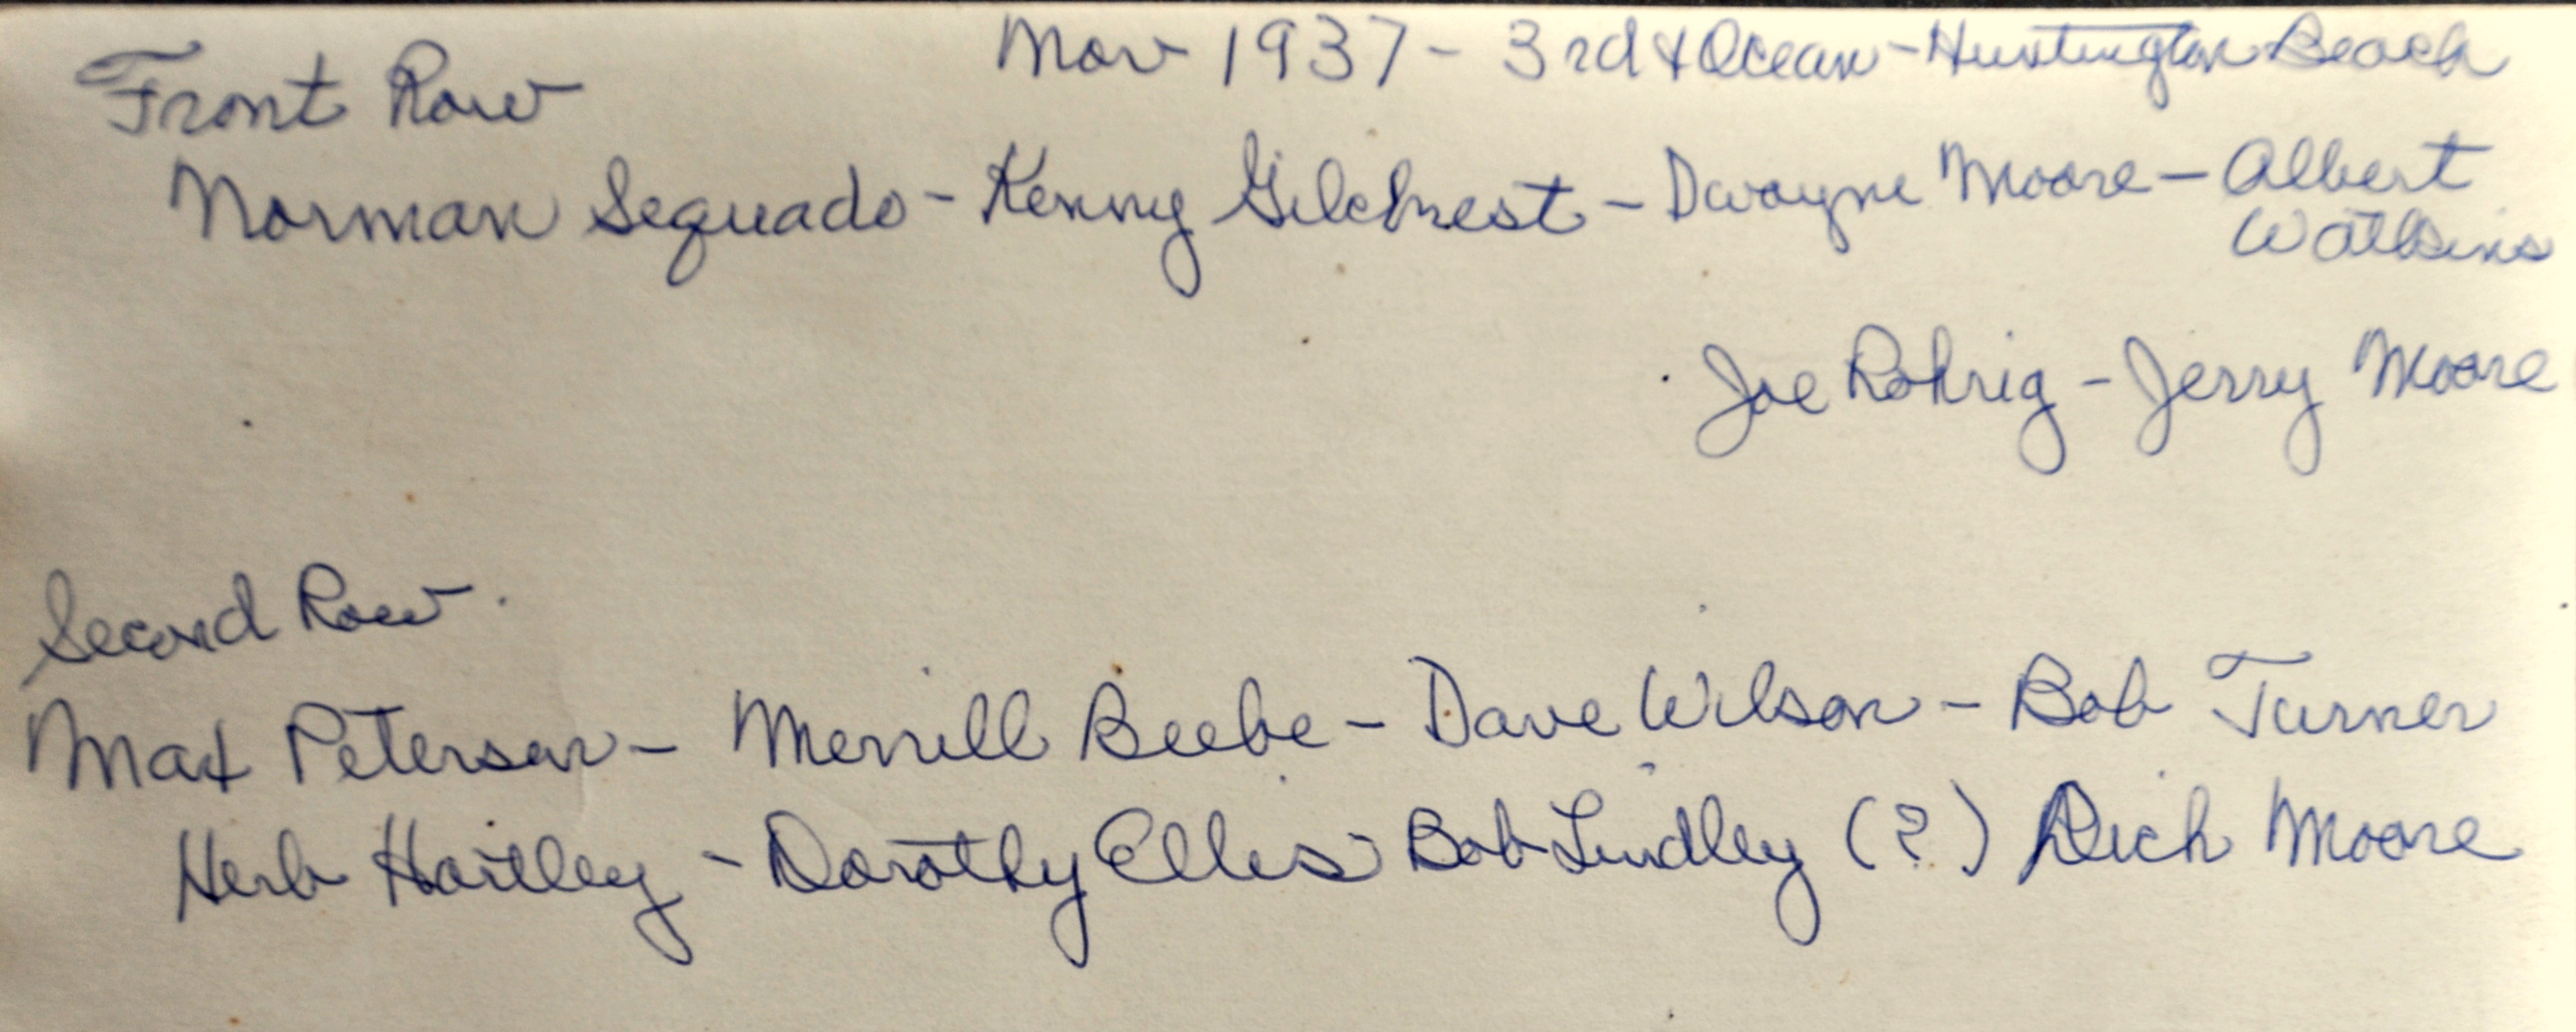 Nov 1937 - 3rd & Ocean - Huntington Beach
Front Row
Norman Sequado - Kenny Gilchrest - Dwayne Moore - Albert
Watkins
Joe Rohrig - Jerry Moore
Second Row.
Max Peterson - Merrill Beebe - Dave Wilson - Bob Turner
Herb Hartley - Dorothy Ellis - Bob Lindley (?) Rich Moore